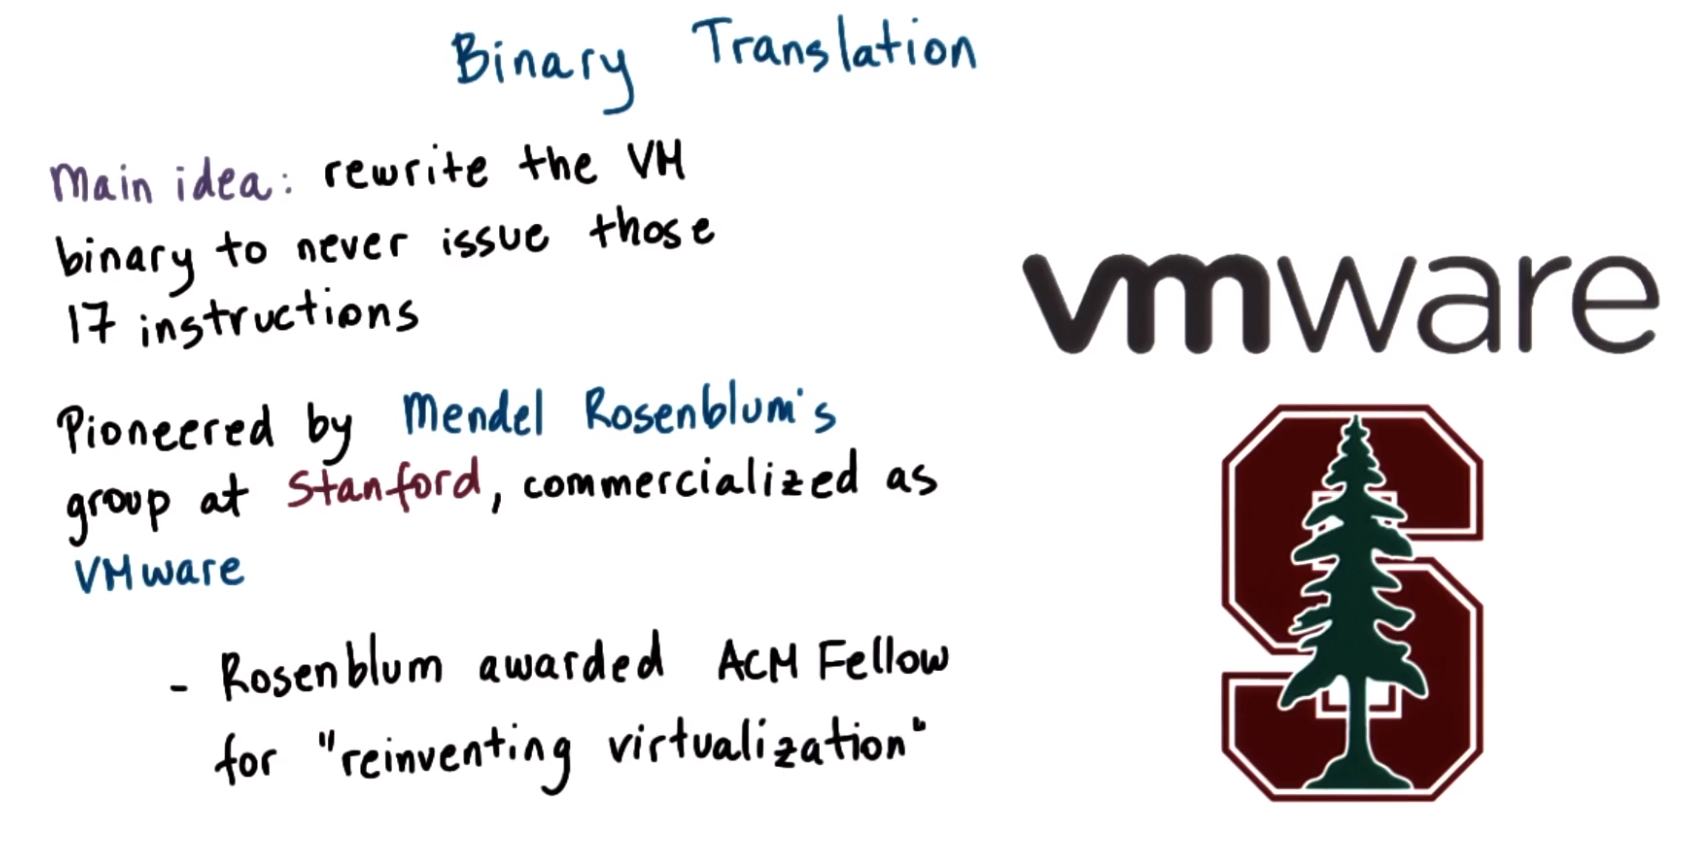 Binary Translation
Main idea: rewrite the VM
binary to never issue those
17 instructions
vmware
Pioneered by Mendel Rosenblum's
group at Stanford, commercialized as
VMware
- Rosenblum awarded ACM Fellow
for "reinventing virtualization"
S